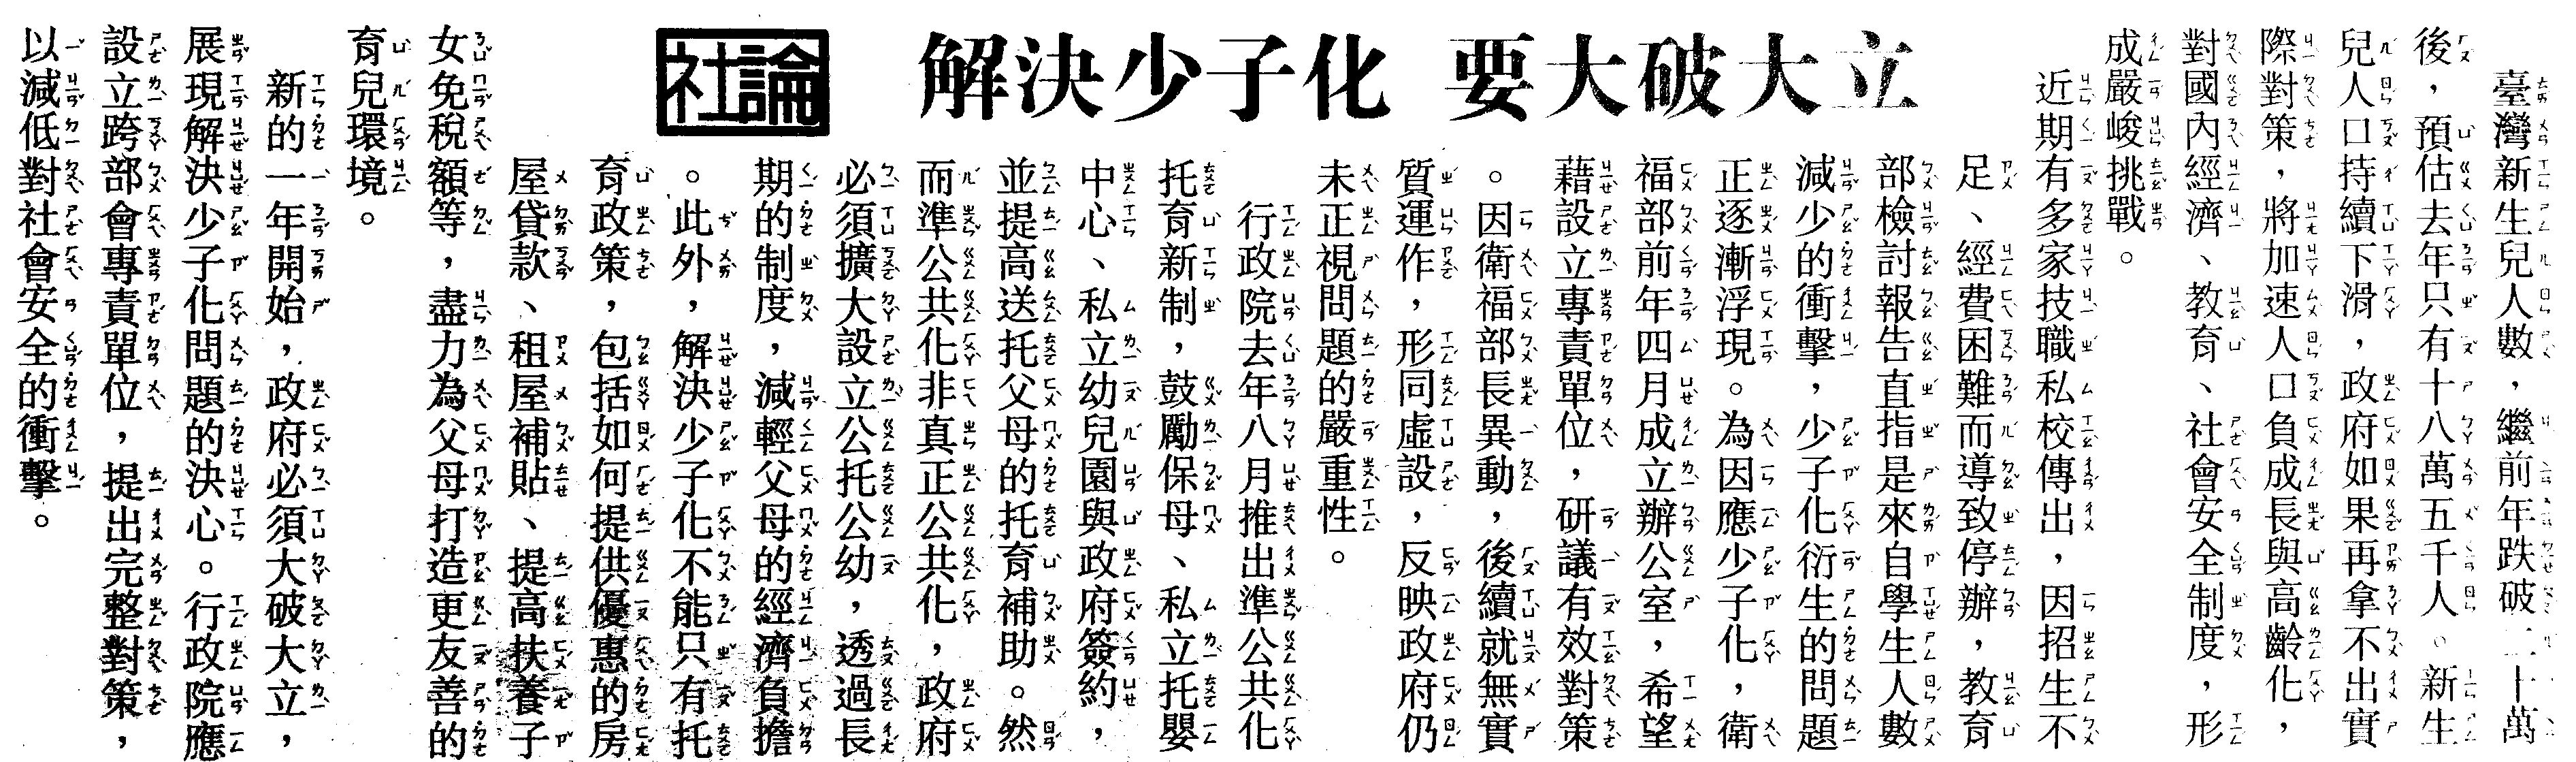 社論
解決少子化 要大破大立
臺灣新生兒人數，繼前年跌破二十萬
後，預估去年只有十八萬五千人。新生
兒人口持續下滑，政府如果再拿不出實
際對策，將加速人口負成長與高齡化，
對國內經濟、教育、社會安全制度，形
成嚴峻挑戰。
近期有多家技職私校傳出，因招生不
足、經費困難而導致停辦，教育
部檢討報告直指是來自學生人數
減少的衝擊，少子化衍生的問題
正逐漸浮現。為因應少子化，衛
福部前年四月成立辦公室，希望
藉設立專責單位，研議有效對策
。因衛福部長異動，後續就無實
質運作，形同虛設，反映政府仍
未正視問題的嚴重性。
行政院去年八月推出準公共化
托育新制，鼓勵保母、私立托嬰
中心、私立幼兒園與政府簽約，
並提高送托父母的托育補助。然
而準公共化非真正公共化，政府
必須擴大設立公托公幼，透過長
期的制度，減輕父母的經濟負擔
。此外，解決少子化不能只有托
育政策，包括如何提供優惠的房
屋貸款、租屋補貼、提高扶養子
女免稅額等，盡力為父母打造更友善的
育兒環境。
新的一年開始，政府必須大破大立，
展現解決少子化問題的決心。行政院應
設立跨部會專責單位，提出完整對策，
以減低對社會安全的衝擊。